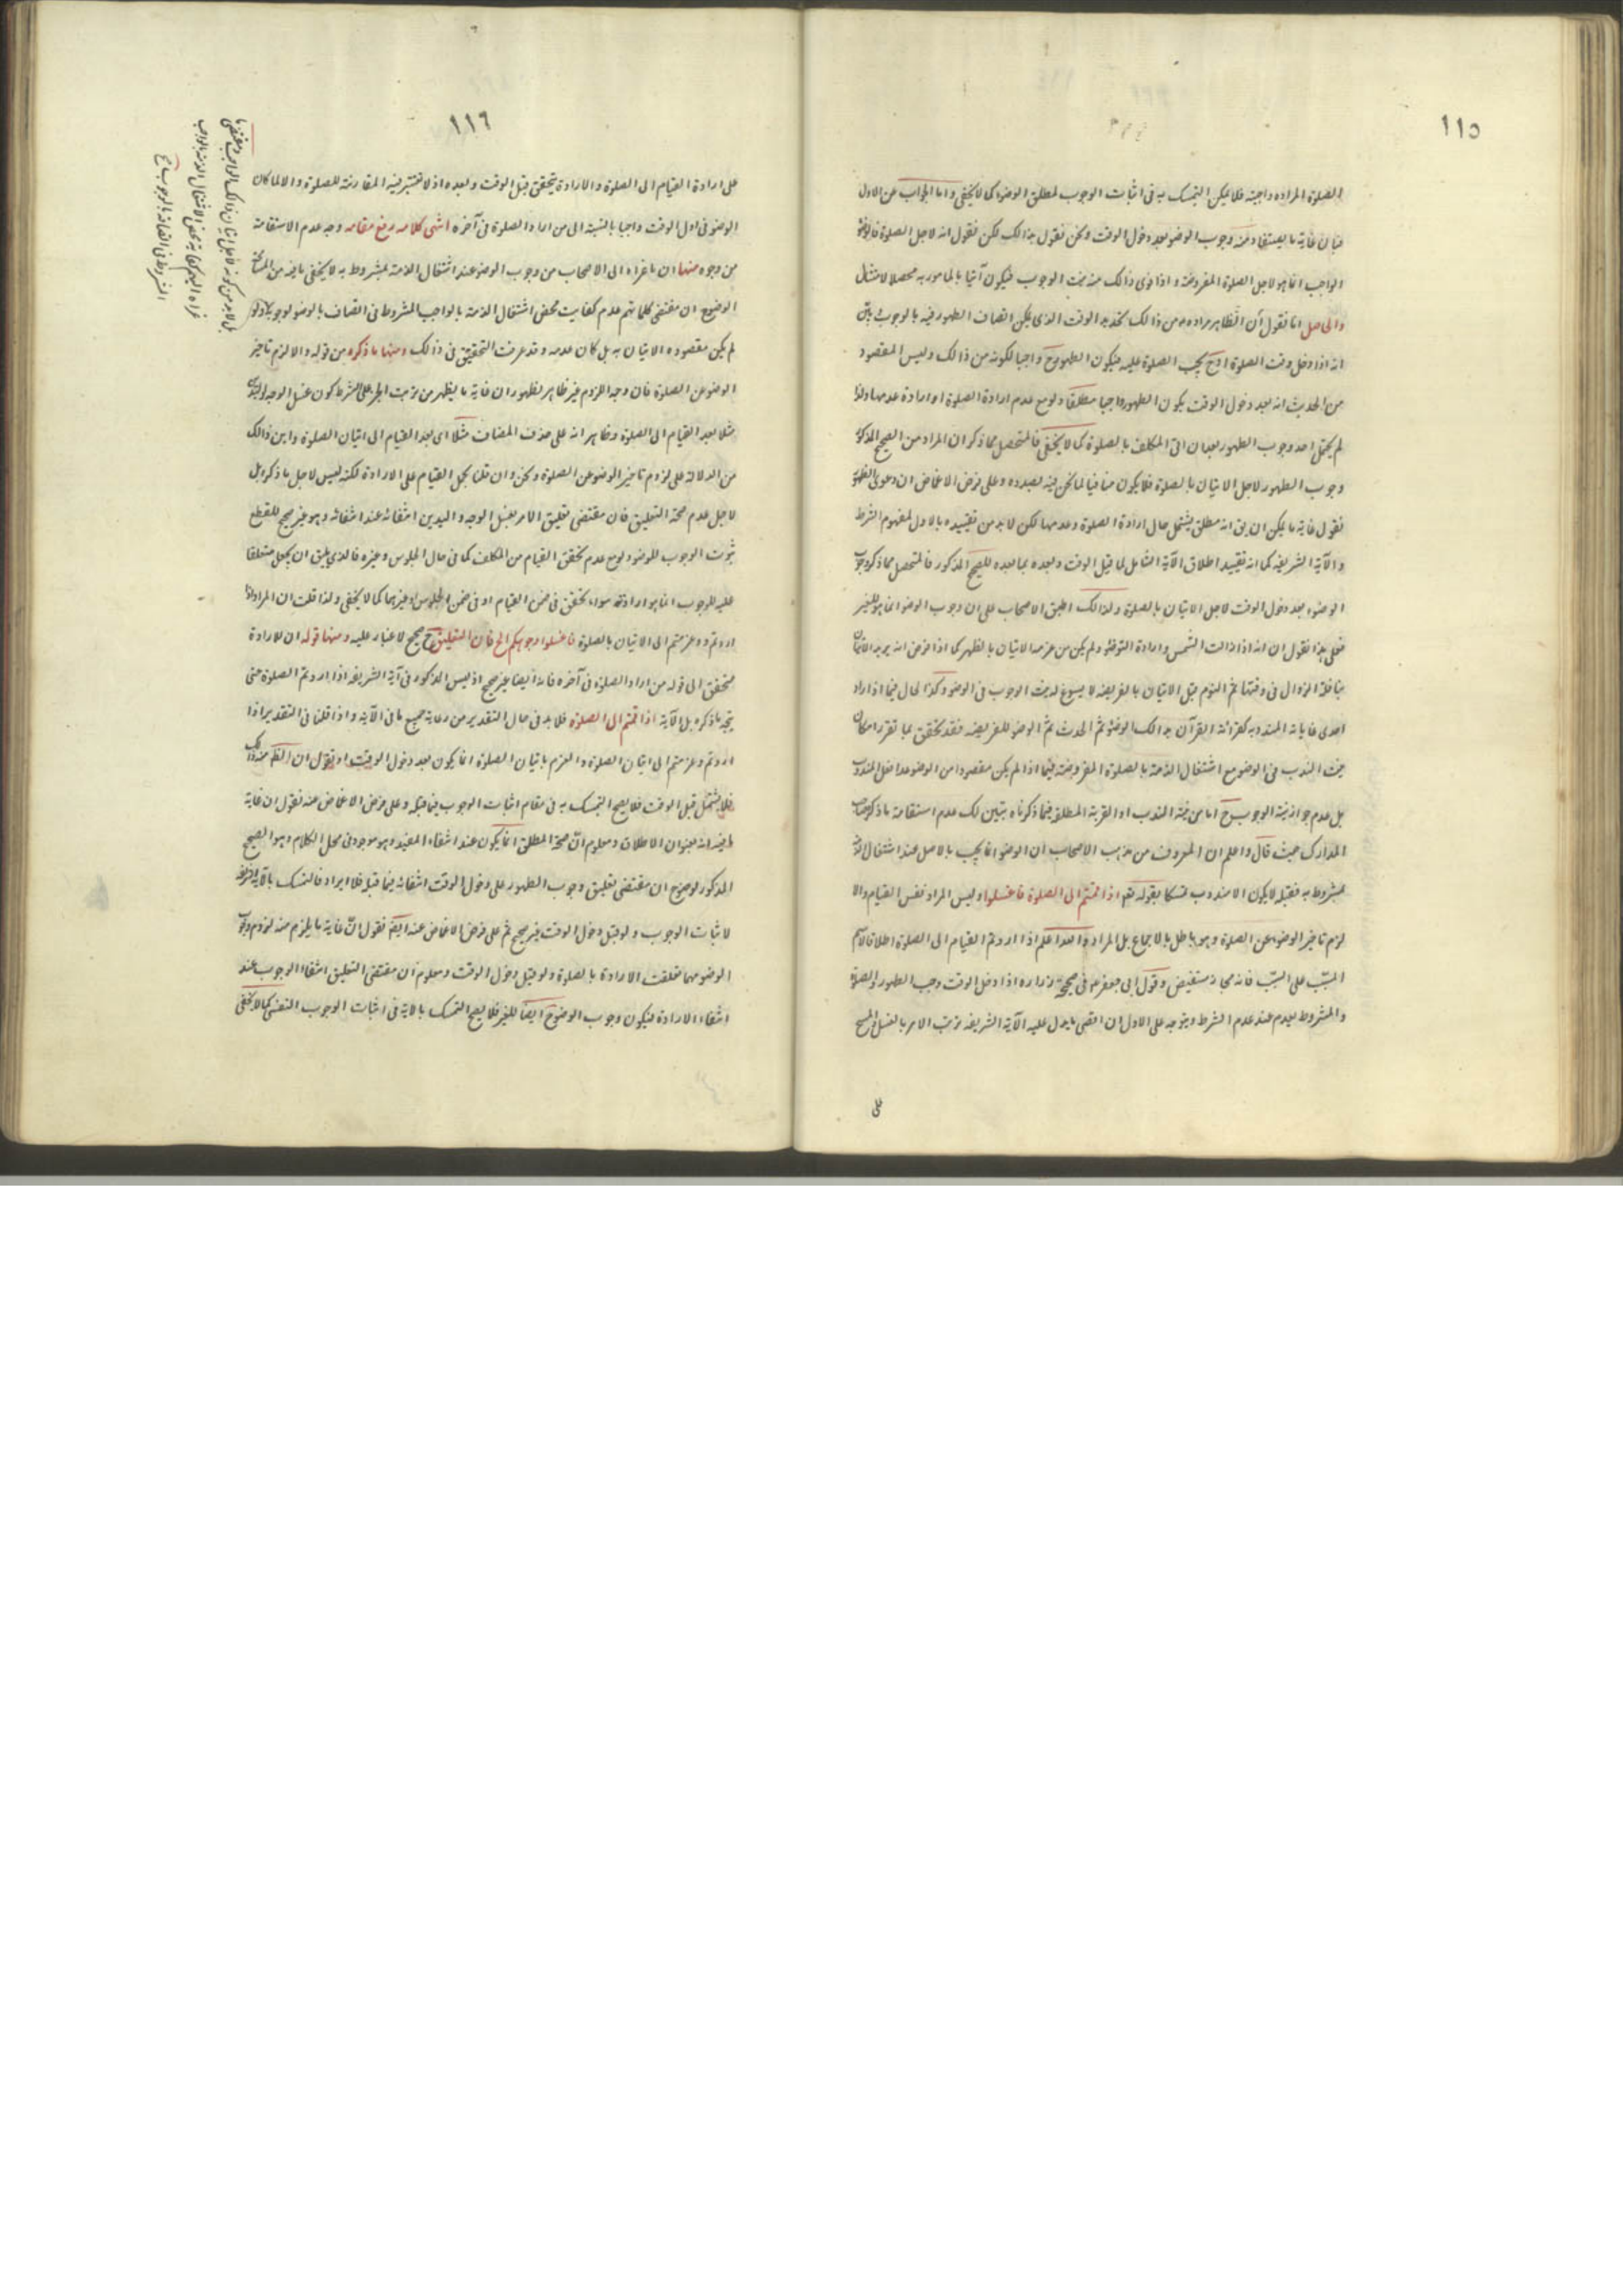 ١١٥
الصلوة المراده واجبة فلا يمكن التمسك به فى اثبات الوجوب لمطلق الوضوء كما لا يخفى واما الجواب عن الاول
فبان غاية ما يستفاد منه وجوب الوضوء بعد دخول الوقت ونحن نقول بذالك لكن نقول انه لاجل الصلوة فالوضوء
الواجب انما هو لاجل الصلوة المفروضة واذا نوى ذالك منه بنية الوجوب فيكون آتيا بالمامور به محصلا لامتثال
والحاصل انا نقول ان الظاهر مراده من ذالك تحديد الوقت الذى يمكن اتصاف الطهور فيه بالوجوب
انه اذا دخل وقت الصلوة اوح يجب الصلوة عليه فيكون الطهور ح واجبا لكونه من ذالك وليس المقصود
من الحديث انه بعد دخول الوقت يكون الطهور واجبا مطلقا ولو مع عدم ارادة الصلوة او ارادة عدمها ولذا
لم يحتمل احد وجوب الطهور بعد ان اتى المكلف بالصلوة كما لا يخفى فالمتحصل مما ذكر ان المراد من الصحيح المذكور
وجوب الطهور لاجل الاتيان بالصلوة فلا يكون منافيا لما نحن فيه بصدده وعلى فرض الاغماض ان دعوى الظهور
نقول غاية ما يمكن ان يق انه مطلق يشتمل حال ارادة الصلوة وعدمها لكن لابد من تقييده بالاول لمفهوم الشرط
والآية الشريفة كما انه تقييد اطلاق الآية الشامل لما قبل الوقت وبعده بما بعده للصحيح المذكور فالمتحصل مما ذكر وجوب
الوضوء بعد دخول الوقت لاجل الاتيان بالصلوة ولذالك اطبق الاصحاب على ان وجوب الوضوء انما هو للغير
فعلى هذا نقول ان انه اذا زالت الشمس وارادة التوضؤ ولم يكن من عزمه الاتيان بالظهر كما اذا فرض انه يريد الاتيان
بنافلة الزوال فى وقتها ثم النوم قبل الاتيان بالفريضه لا يسوغ له نية الوجوب فى الوضوء وكذا الحال فيما اذا اراد
احدى غاياته المندوبه كقرائة القرآن بذالك الوضوء ثم الحدث ثم الوضو للفريضه فقد تحقق بما تقرر امكان
نية الندب فى الوضو مع اشتغال الذمة بالصلوة المفروضة فيما اذا لم يكن مقصودا من الوضوء
بل عدم جواز نية الوجوب ح اما من نية الندب او القربة المطلقة فيما ذكرناه يتبين لك عدم استقامة ما ذكره صاحب
المدارك حيث قال واعلم ان المعروف من مذهب الاصحاب ان الوضوء انما يجب بالاصل عند اشتغال الذمة
بمشروط به فقبله لا يكون الا مندوب تمسكا بقوله تعه اذا قمتم الى الصلوة فاغسلوا وليس المراد نفس القيام والا
لزم تاخير الوضوء عن الصلوة وهو باطل بالاجماع بل المراد والله اعلم اذا اردتم القيام الى الصلوة اطلاقا لاسم
المسبّب على السبّب فانه مجاز مستفيض وقول ابى جعفر ع فى صحيحة زراره اذا دخل الوقت وجب الطهور والصلوة
والمشروط يعدم عند عدم الشرط ويتوجه على الاول ان اقصى ما يدل عليه الآية الشريفه ترتب الامر بالغسل والمسح
على
١١٦
على ارادة القيام الى الصلوة والارادة يتحقق قبل الوقت وبعده اذ لا تعتبر فيه المقارنة للصلوة والا لما كان
الوضو فى اول الوقت واجبا بالنسبة الى من اراد الصلوة فى آخره انتهى كلامه رفع مقامه وجه عدم الاستقامة
من وجوه منها ان ما عزاه الى الاصحاب من وجوب الوضو عند اشتغال الذمة بمشروط به لا يخفى ما فيه من المسامحة
الوضوح ان مقتضى كلماتهم عدم كفايت محض اشتغال الذمة بالواجب المشروط فى اتصاف بالوضو لوجوب
لم يكن مقصوده الاتيان به بل كان عدمه وقد عرفت التحقيق فى ذالك ومنها ما ذكره من قوله والا لزم تاخير
الوضو عن الصلوة فان وجه اللزوم غير ظاهر لظهور ان غاية ما يظهر من ترتب الجزاء على الشرط كون غسل الوجه واليدين
مثلا بعد القيام الى الصلوة وظاهر انه على حذف المضاف مثلا اى بعد القيام الى اتيان الصلوة واين ذالك
من الدلالة على لزوم تاخير الوضو عن الصلوة ونحن وان قلنا بحمل القيام على الارادة لكنه ليس لاجل ما ذكر بل
لاجل عدم صحة التعليق فان مقتضى تعليق الامر بغسل الوجه واليدين انتفائه عند انتفائه وهو غير صحيح للقطع
بثبوت الوجوب للوضو ولو مع عدم تحقق القيام من المكلف كما فى حال الجلوس وغيره فالذى يليق ان يجعل متعلقا
عليه للوجوب انما هو ارادته سواء تحقق فى ضمن القيام او فى ضمن الجلوس او غيرهما كما لا يخفى ولذا قلت ان المراد اذا
اردتم وعزمتم الى الاتيان بالصلوة فاغسلوا وجوهكم الخ فان التعليق ح صحيح لا غبار عليه ومنها قوله ان الارادة
يتحقق الى قوله من اراد الصلوة فى آخره فانه ايضا غير صحيح اذ ليس المذكور فى آية الشريفه اذا اردتم الصلوة حتى
يتجه ما ذكره بل الآية اذا قمتم الى الصلوه فلا بد فى حال التقدير من رعاية جميع ما فى الآية واذا قلنا فى التقدير اذا
اردتم وعزمتم الى اتيان الصلوة والعزم باتيان الصلوة انما يكون بعد دخول الوقت او نقول ان الظ منه ذالك
فلا يشتمل قبل الوقت فلا يصح التمسك به فى مقام اثبات الوجوب فيما قبله وعلى فرض الاغماض عنه نقول ان غاية
ما فيه انه بعنوان الاطلاق ومعلوم ان صحة المطلق انما يكون عند انتفاء المقيد وهو موجود فى محل الكلام وهو الصحيح
المذكور لوضوح ان مقتضى تعليق وجوب الطهور على دخول الوقت انتفائه فيما قبله فلا ايراد فالتمسك بالآية الشريفه
لاثبات الوجوب ولو قبل دخول الوقت غير صحيح ثم على فرض الاغماض عنه ايضه نقول ان غاية ما يلزم منه لزوم وجوب
الوضو مهما تعلقت الارادة بالصلوة ولو قبل دخول الوقت ومعلوم ان مقتضى التعليق انتفاء الوجوب عند
انتفاء الارادة فيكون وجوب الوضوء ح ايضا للغير فلا يصح التمسك بالاية فى اثبات الوجوب النفسى كما لا يخفى
بل لابد من كونه لاجل اتيان ذالك الواجب ومقتضى ما
عزاه اليهم كفاية محض الاشتغال الذمة بالواجب
المشروط فى اتصافه بالوجوب